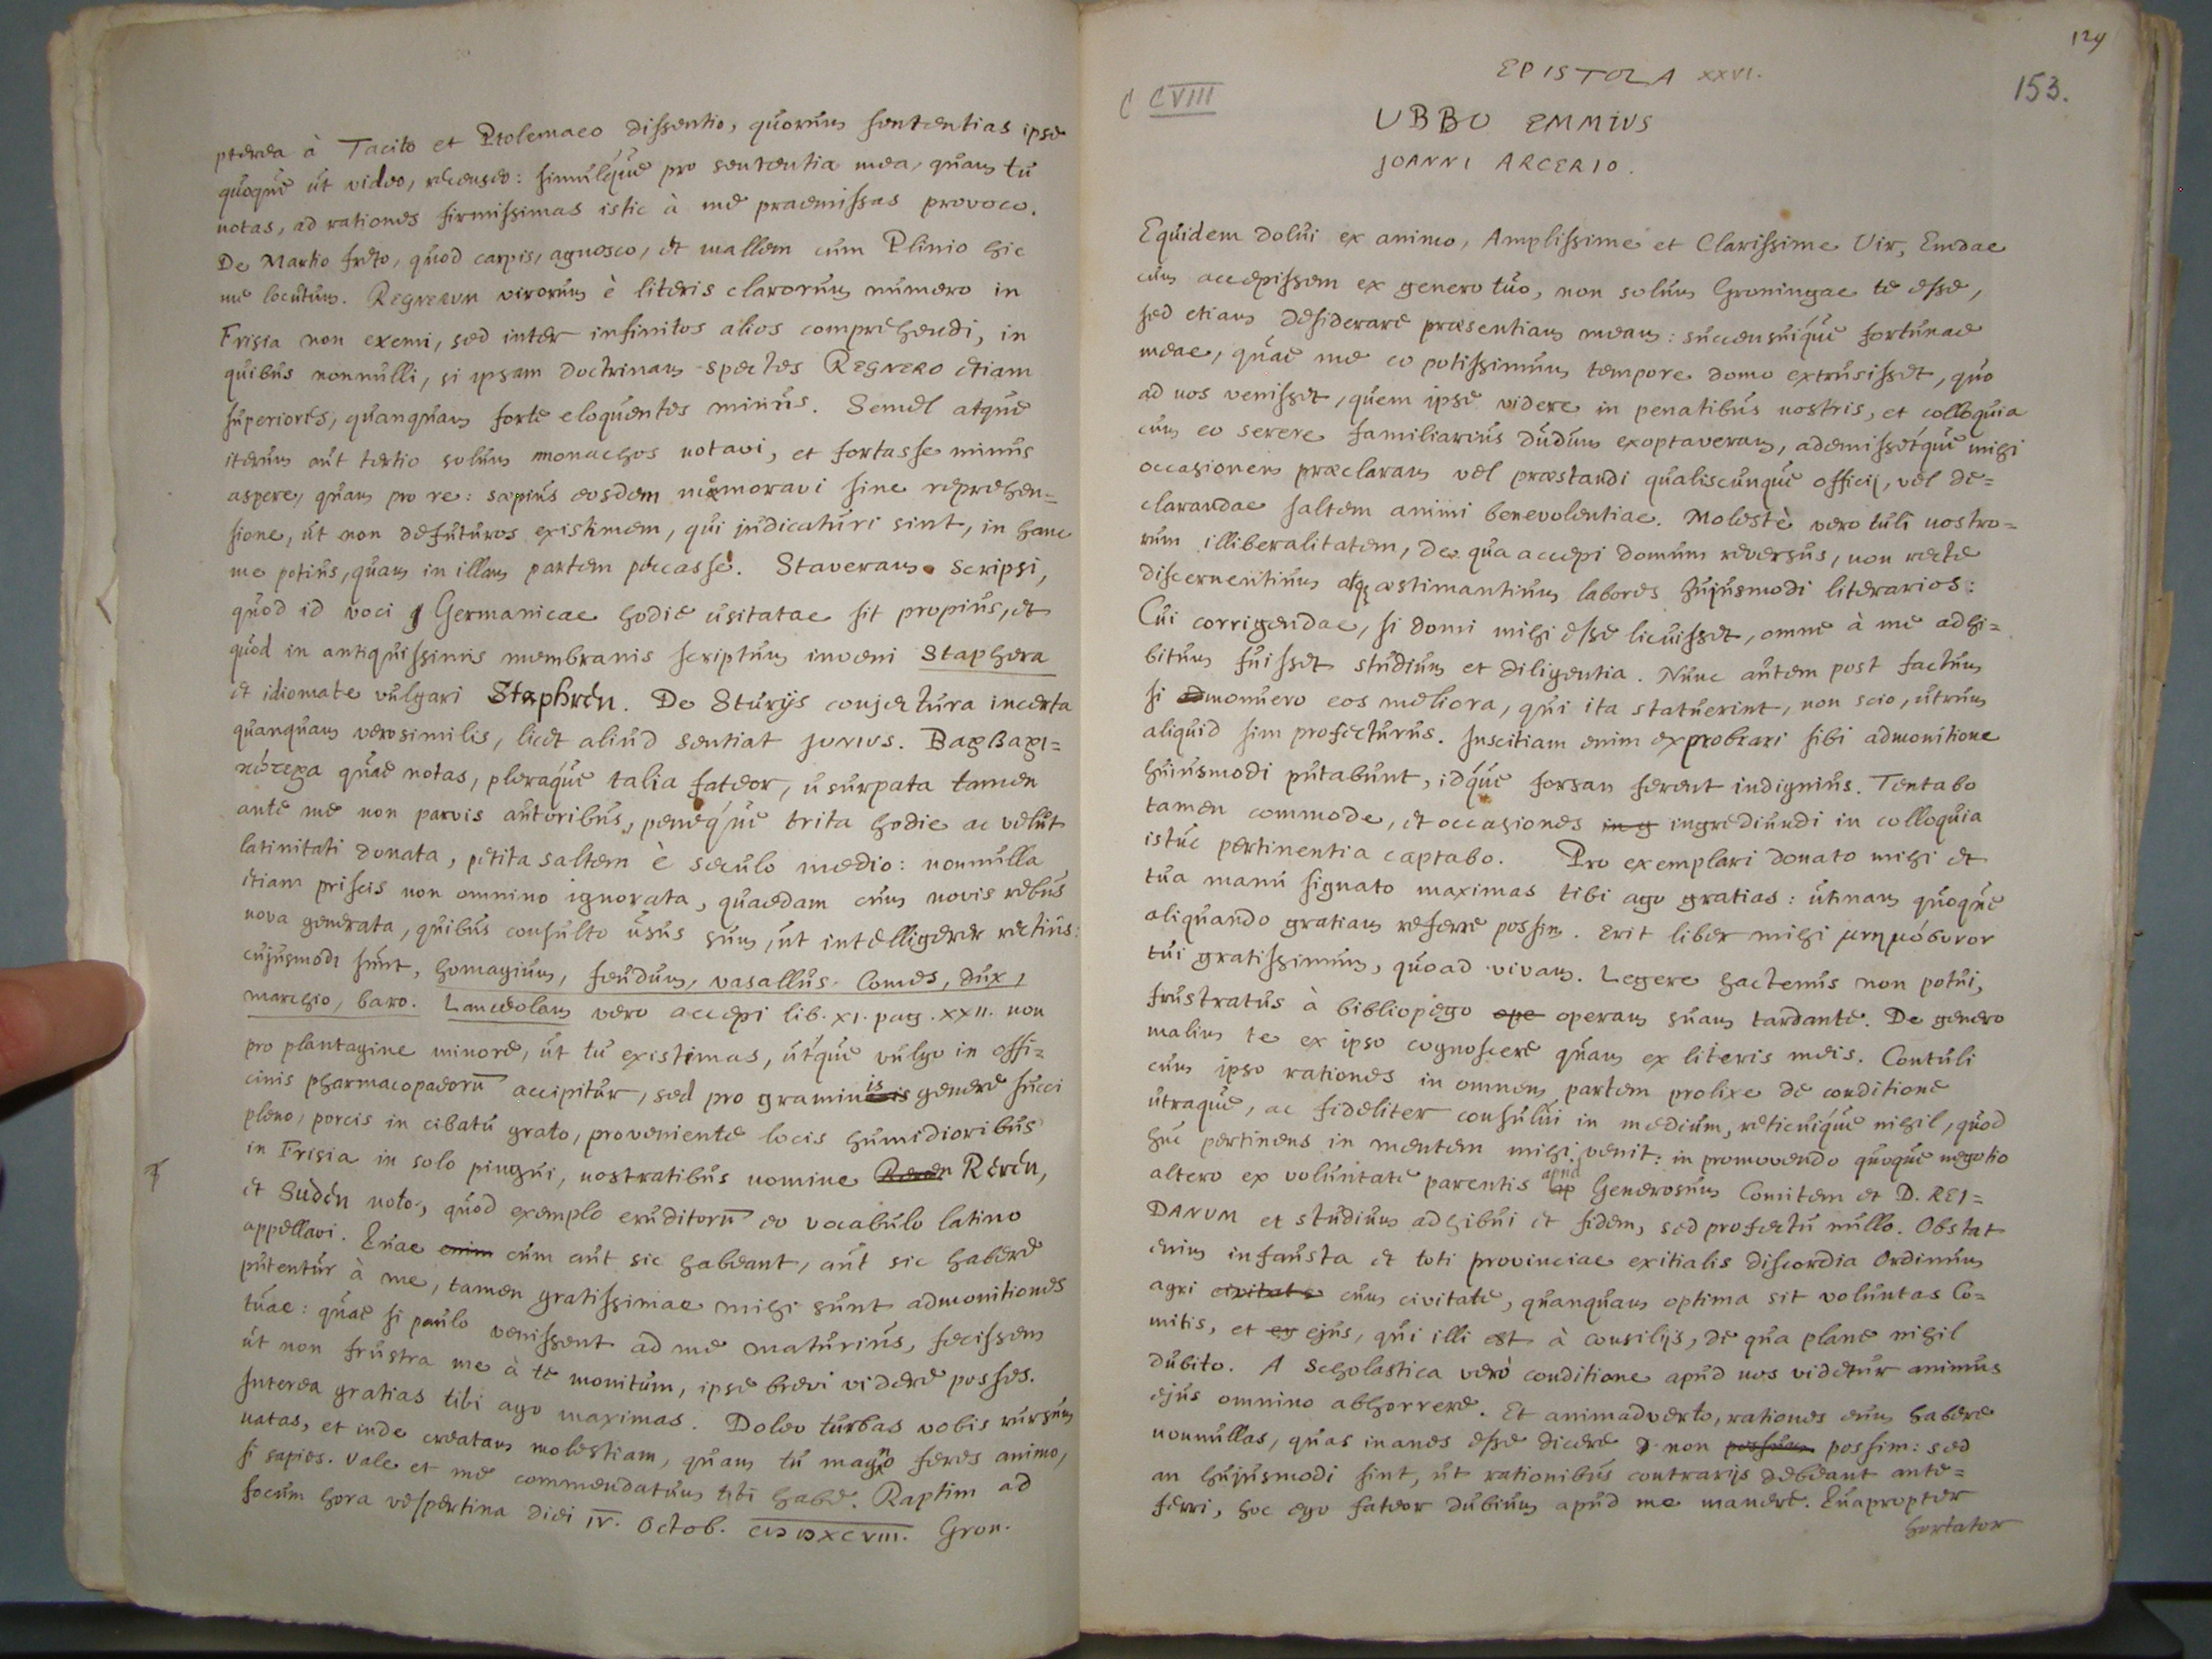 pterea à Tacito et Ptolemaeo dissentio, quorum sententias ipse
quoque ut video, recenseo: simulque pro sententia mea, quam tu
notas, ad rationes firmissimas istic à me praemissas provoco.
De Martio freto, quod carpis, agnosco, et mallem cum Plinio hic
me locutum. REGNERUM virorum è literis clarorum numero in
Frisia non exemi, sed inter infinitos alios comprehendi, in
quibus nonnulli, si ipsam doctrinam spectes REGNERO etiam
superiores, quanquam forte eloquentes minus. Semel atque
iterum aut tertio solum monachos notavi, et fortasse minus
aspere, quam pro re: sapius eosdem memoravi sine reprehen=
sione, ut non defuturos existimem, qui judicaturi sint, in hanc
me potius, quam in illam partem peccasse. Staveram scripsi,
quod id voci Germanicae hodie usitatae sit propius, et
quod in antiquissimis membranis scriptum inveni Staphera
et idiomate vulgari Staphren. De Sturijs conjectura incerta
quanquam verosimilis, licet aliud sentiat JUNIUS. Βαρβαρι=
κώτερα quae notas, pleraque talia fateor, usurpata tamen
ante me non parvis autoribus, peneque trita hodie ac velut
latinitati donata, petita saltem è seculo medio: nonnulla
etiam priscis non omnino ignorata, quaedam cum novis rebus
nova generata, quibus consulto usus sum, ut intelligerer rectius:
cujusmodi sunt, homagium, feudum, vasallus. Comes, dux,
marchio, baro. Lanceolam vero accepi lib. XI. pag. XXII. non
pro plantagine minore, ut tu existimas, utque vulgo in offi=
cinis pharmacopaeorū accipitur, sed pro graminis genere succi
pleno, porcis in cibatu grato, proveniente locis humidioribus
in Frisia in solo pingui, nostratibus nomine Reren,
et Sudden noto, quod exemplo eruditorū eo vocabulo latino
appellavi. Quae enim cum aut sic habeant, aut sic habere
putentur à me, tamen gratissimae mihi sunt admonitiones
tuae: quae si paulo venissent ad me maturius, fecissem
ut non frustra me à te monitum, ipse brevi videre posses.
Interea gratias tibi ago maximas. Doleo turbas vobis rursum
natas, et inde creatam molestiam, quam tu magno feres animo,
si sapies. Vale et me commendatum tibi habe. Raptim ad
focum hora vespertina diei IV. Octob. CIƆ IƆ XCVIII. Gron.
124
153.
C CVIII
EPISTOLA XXVI.
UBBO EMMIUS
JOANNI ARCERIO.
Equidem dolui ex animo, Amplissime et Clarissime Vir, Emdae
cum accepissem ex genero tuo, non solum Groningae te esse,
sed etiam desiderare praesentiam meam: succensuique fortunae
meae, quae me eo potissimum tempore domo extrusisset, quo
ad nos venisset, quem ipse videre in penatibus nostris, et colloquia
cum eo serere familiarius dudum exoptaveram, ademissetque mihi
occasionem praeclaram vel praestandi qualiscunque officij, vel de=
clarandae saltem animi benevolentiae. Molestè vero tuli nostro=
rum illiberalitatem, de qua accepi domum reversus, non recte
discernentium atq; aestimantium labores hujusmodi literarios:
Cui corrigendae, si domi mihi esse licuisset, omne à me adhi=
bitum fuisset studium et diligentia. Nunc autem post factum
si monuero eos meliora, qui ita statuerint, non scio, utrum
aliquid sim profecturus. Inscitiam enim exprobrari sibi admonitione
huiusmodi putabunt, idque forsan ferent indignius. Tentabo
tamen commode, et occasiones in g ingrediundi in colloquia
istuc pertinentia captabo. Pro exemplari donato mihi et
tua manu signato maximas tibi ago gratias: utinam quoque
aliquando gratiam referre possim. Erit liber mihi μνημόσυνον
tui gratissimum, quoad vivam. Legere hactenus non potui,
frustratus à bibliopego ope operam suam tardante. De genero
malim te ex ipso cognoscere quam ex literis meis. Contuli
cum ipso rationes in omnem partem prolixe de conditione
utraque, ac fideliter consului in medium, reticuique nihil, quod
huc pertinens in mentem mihi venit: in promovendo quoque negotio
altero ex voluntate parentis apud Generosum Comitem et D. REI=
DANUM et studium adhibui et fidem, sed profectu nullo. Obstat
enim infausta et toti provinciae exitialis discordia Ordinum
agri civitate cum civitate, quanquam optima sit voluntas Co=
mitis, et ejus, qui illi est à consilijs, de qua plane nihil
dubito. A scholastica verò conditione apud nos videtur animus
ejus omnino abhorrere. Et animadverto, rationes eum habere
nonnullas, quas inanes esse dicere non possum possim: sed
an hujusmodi sint, ut rationibus contrarijs debeant ante=
ferri, hoc ego fateor dubium apud me manere. Quapropter
hortator